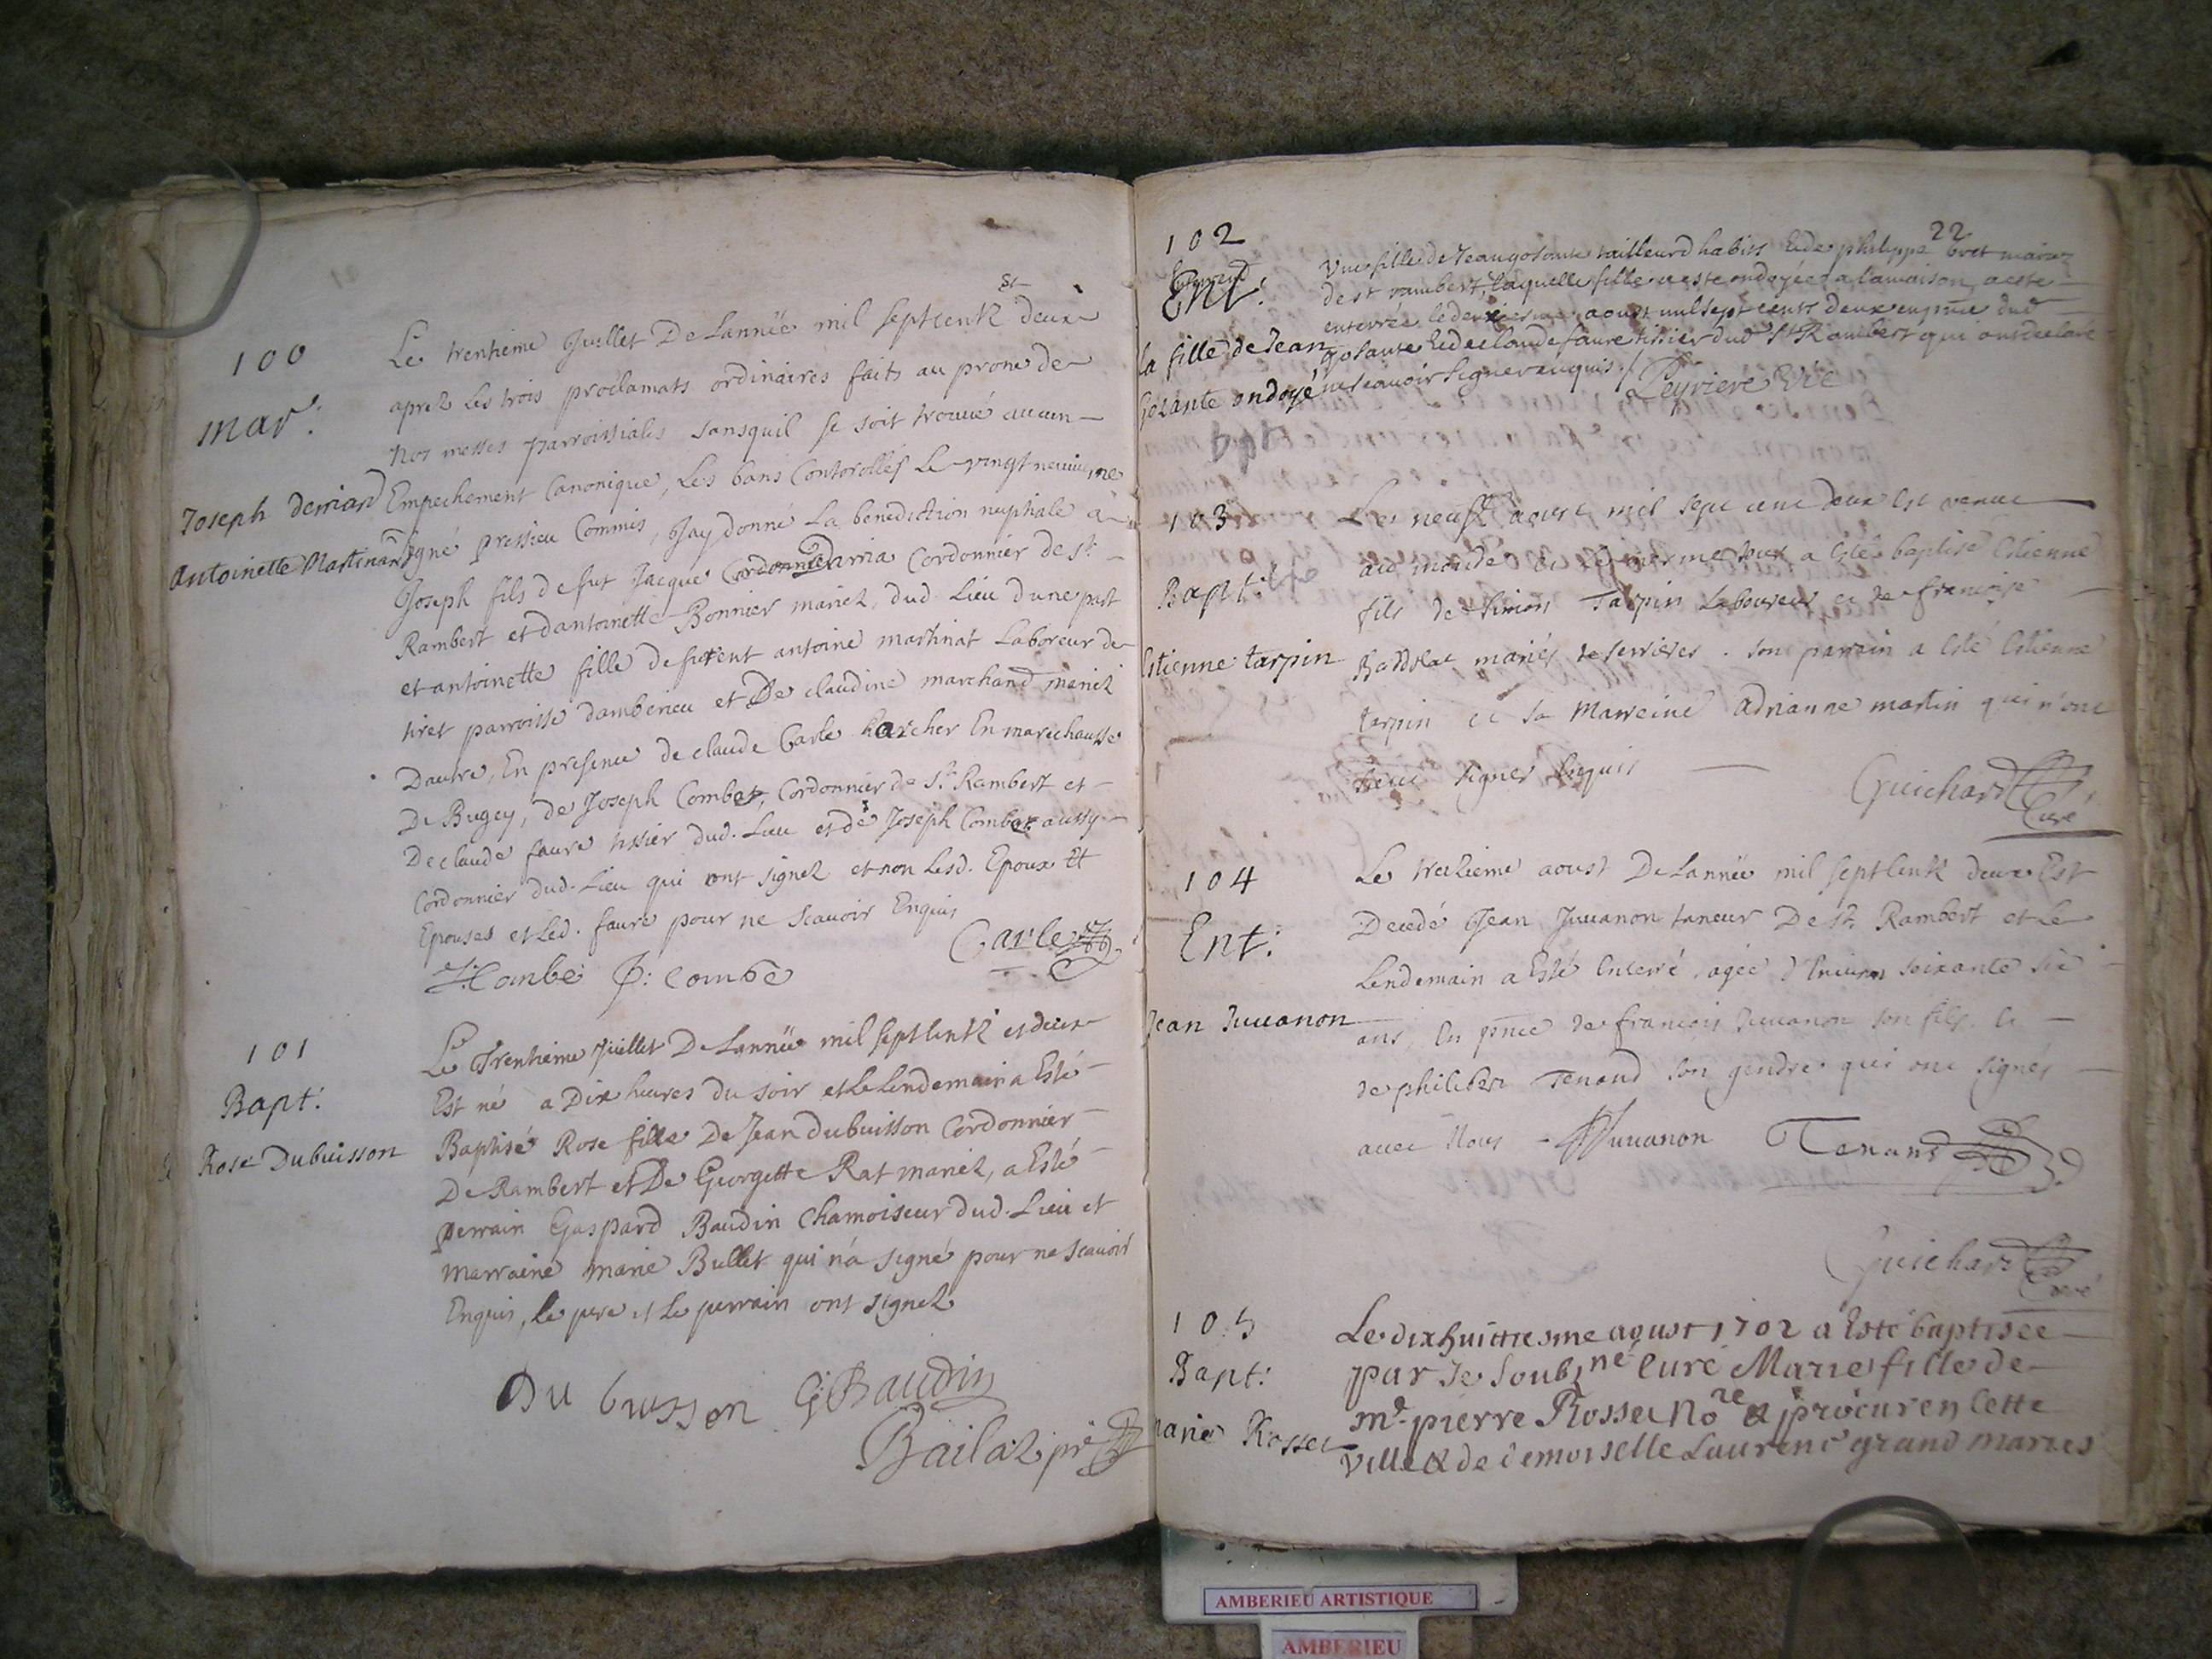 100
mar:
Joseph derriad
Antoinette Martinand
Le trentieme Juillet De Lannëe mil septcentz deux
aprez Les trois proclamats ordinaires faits au prone de
nos messes parroissiales sansquil se soit trouvé aucun
Empechement Canonique, Les bans Contorollés Le vingt neuvieme
signé pressieu Commis, Jay donné La benediction nuptiale a
Joseph fils defut Jacque Darria Cordonnier de st.
Rambert et dantoinette Bonnier mariez, dud. Lieu dune part
et antoinette fille de antoine martinat Laboreur de
tiret parroisse damberieu et De claudine marchand mariez
Dautre, En presence de claude Carle harcher En marechaussé
De Bugey, de Joseph Combet, Cordonnier de St. Rambert et
De claude faure tissier dud. Lieu et de Joseph Combet aussy
Cordonnier dud. Lieu qui ont signez et non Lesd. Epoux Et
Epouses et Led. faure pour ne scavoir Enquis
Carle
J: Combe
101
Bapt:
Rose Dubuisson
Le Trentieme Juillet De Lannëe mil septcentz et deux
Est né a Dix heures du soir et Le Lendemain a Esté
Baptisé Rose fille De Jean dubuisson Cordonnier
De Rambert et De Georgette Rat mariez, a Esté
perrain Gaspard Baudin Chamoiseur dud. Lieu et
marraine marie Bullet qui n'a signé pour ne scavoir
Enquis, le pere et Le perrain ont signez
Du buisson G: Baudin
Bailaz pre
22
102
Ent:
la fille de Jean
Gosante ondoyé
Une fille de Jean gosante tailleur d habits Et de philippe bret mariez
de st rambert, laquelle fille a este ondoyée a la maison, a este
enterrée le deuxiesme aoust mil sept cents deux en pnce dud
gosante Et de claude faure tissier dud St Rambert qui ont declaré
ne scavoir signer enquis. / Peyriere Vic
103
Bapt:
Estienne tarpin
Le neuf aoust mil sept cent deux Est venue
au monde et le mesme jour a Esté baptisé Estienne
fils de Simon Tarpin Laboureur et de françoise
mariés de serrieres. son parrain a Esté Estienne
tarpin et sa Marreine Adrianne martin qui n'ont
sceu signer Enquis
Guichard Curé
104
Ent:
Jean Juuanon
Le treizieme aoust De Lannëe mil septcentz deux Est
Decedé Jean Juuanon taneur De St. Rambert et Le
Lendemain a Esté Enterré, agée d'Environ soixante six
ans, En pnce de francois Juuanon son fils et
de philibert Tenand son gendre qui ont signés
avec Nous Juuanon Tenand
Guichard Curé
105
Bapt:
marie Rosset
Le dixhuittiesme aoust 1702 a Esté baptisee
par Je Soub.né Curé Marie fille de
me. pierre Rosset No.re & procur en Cette
ville & de demoiselle Laurence grand mariés
AMBERIEU ARTISTIQUE
AMBERIEU